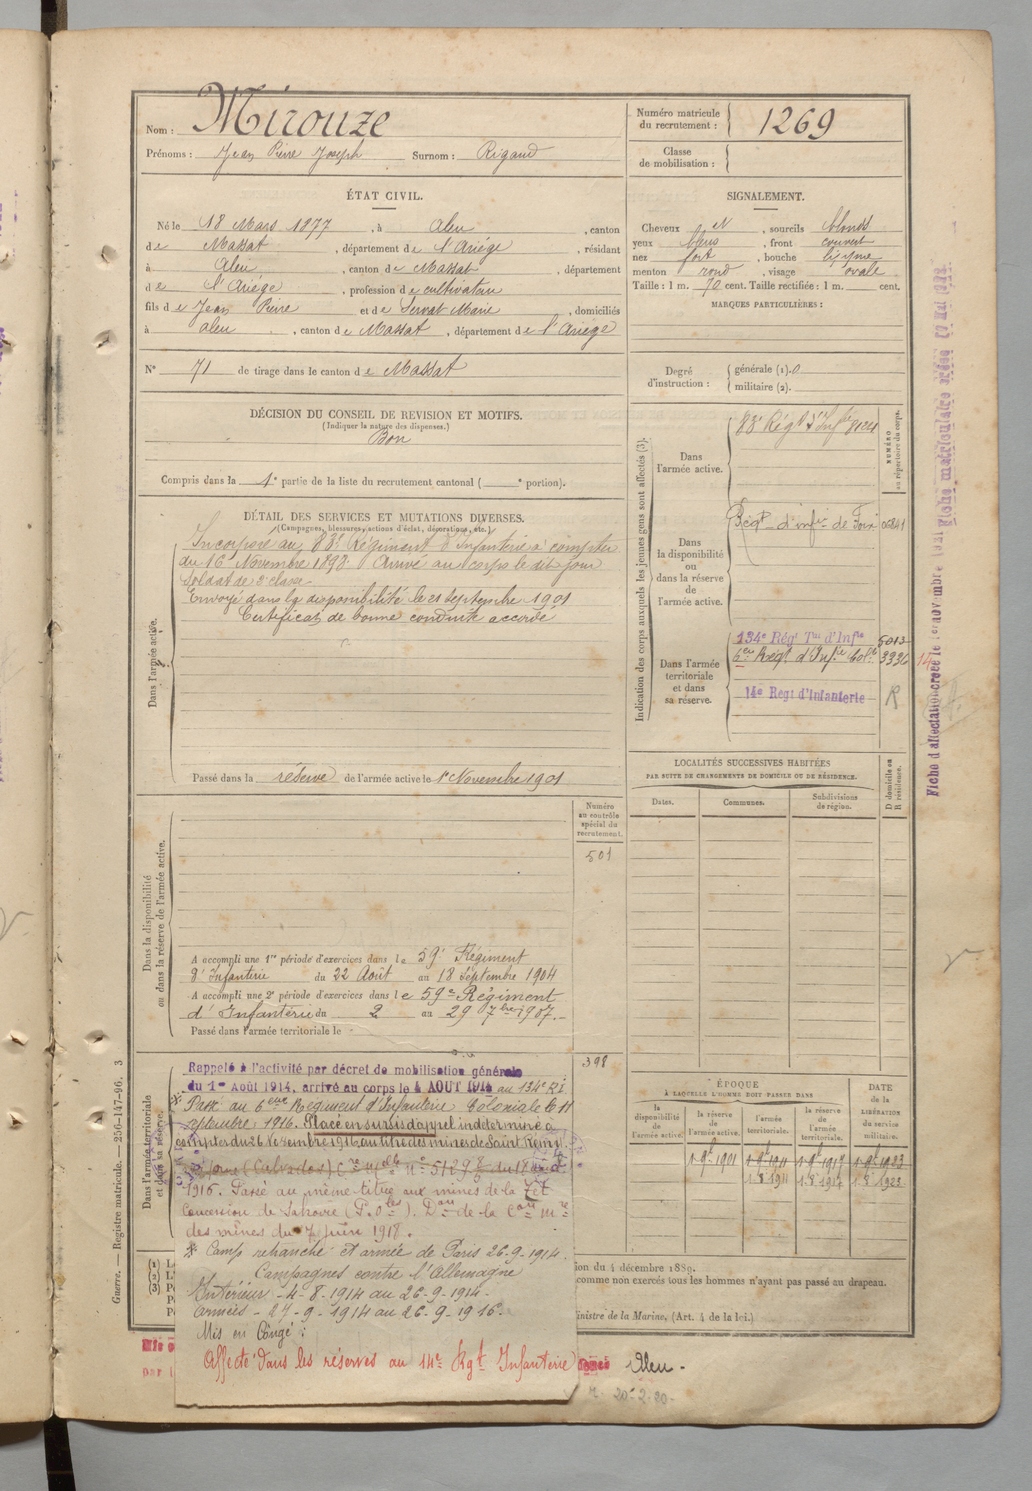 Nom : Mirouze
Prénoms : Jean Pierre Joseph Surnom : Rigaud
Numéro matricule du recrutement : 1269
Classe de mobilisation :
ÉTAT CIVIL.
Né le 18 Mars 1877, à Aleu, canton
de Massat, département de l'Ariége, résidant
à Aleu, canton de Massat, département
de l'Ariége, profession de cultivateur
fils de Jean Pierre et de Servat Marie, domiciliés
à aleu, canton de Massat, département de l'Ariége
N° 71 de tirage dans le canton de Massat
SIGNALEMENT.
Cheveux N, sourcils blonds
yeux bleus, front couvert
nez fort, bouche
menton rond, visage ovale
Taille : 1 m. 70 cent. Taille rectifiée : 1 m. cent.
MARQUES PARTICULIÈRES :
Degré d'instruction : générale (1). 0
militaire (2).
DÉCISION DU CONSEIL DE REVISION ET MOTIFS.
(Indiquer la nature des dispenses.)
Bon
Compris dans la 1e partie de la liste du recrutement cantonal ( e portion).
DÉTAIL DES SERVICES ET MUTATIONS DIVERSES.
(Campagnes, blessures, actions d'éclat, décorations, etc.)
Dans l'armée active.
Incorporé au 83e Régiment d'Infanterie à compter
du 16 Novembre 1898. Arrivé au corps le dit jour
Soldat de 2e classe
Envoyé dans la disponibilité le 21 septembre 1901
Certificat de bonne conduite accordé
Passé dans la réserve de l'armée active le 1er Novembre 1901
Indication des corps auxquels les jeunes gens sont affectés (3).
NUMÉRO au répertoire du corps.
Dans l'armée active.
83e Régt d'Infie 8124
Dans la disponibilité ou dans la réserve de l'armée active.
Régt d'infie de Foix
Dans l'armée territoriale et dans sa réserve.
134e Régt Tal d'Infie 5013
6me Régt d'Infie Colle 3336
14e Regt d'Infanterie R
Fiche d'affectation créée le 1er novembre
Fiche matriculaire créée
LOCALITÉS SUCCESSIVES HABITÉES
PAR SUITE DE CHANGEMENTS DE DOMICILE OU DE RÉSIDENCE.
D domicile ou R résidence.
Dates. Communes. Subdivisions de région.
Dans la disponibilité ou dans la réserve de l'armée active.
Numéro au contrôle spécial du recrutement.
501
A accompli une 1re période d'exercices dans le 59e Régiment
d'Infanterie du 22 Août au 18 Septembre 1904
A accompli une 2e période d'exercices dans le 59e Régiment
d'Infanterie du 2 au 29 7bre 1907.-
Passé dans l'armée territoriale le
398
Dans l'armée territoriale et dans sa réserve.
Rappelé à l'activité par décret de mobilisation générale
du 1er Août 1914, arrivé au corps le 4 AOUT 1914 au 134e R.I.
Passé au 6eme Régiment d'Infanterie Coloniale le 11
septembre 1916. Placé en sursis d'appel indéterminé à
compter du 26 Septembre 1916 au titre des mines de Saint Remy
1916. Passé au même titre aux mines de la
concession de Sahorre (P. Oles).
des mines du 7 juin 1918.
Camp retranché et armée de Paris 26-9-1914.
Campagnes contre l'Allemagne
Intérieur - 4-8-1914 au 26-9-1914.
armées - 27-9-1914 au 26-9-1916.
Mis en Congé :
Affecté dans les réserves au 14e Rgt Infanterie
Aleu -
20-2-20-
ÉPOQUE
À LAQUELLE L'HOMME DOIT PASSER DANS
DATE DE LA LIBÉRATION DU service militaire.
la disponibilité de l'armée active. la réserve de l'armée active. l'armée territoriale. la réserve de l'armée territoriale.
1-9e-1901 1-9e-1911 1-9e-1917 1-9e-1923
1.8 1911 1.8 1917 1.8 1923
ion du 4 décembre 1889.
comme non exercés tous les hommes n'ayant pas passé au drapeau.
inistre de la Marine, (Art. 4 de la loi.)
Guerre. — Registre matricule. — 256-147-96. 3